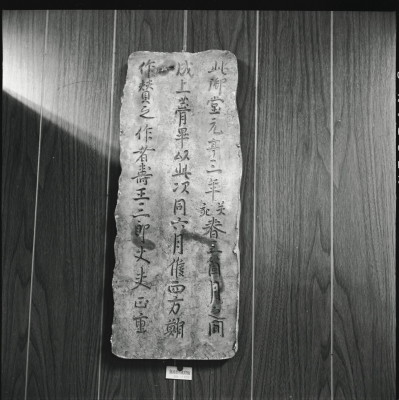 此御堂元亨三年癸亥春三箇月之間
成上葺畢以此次同六月仮四方朔
作賛之作者壽王三郎大夫正重